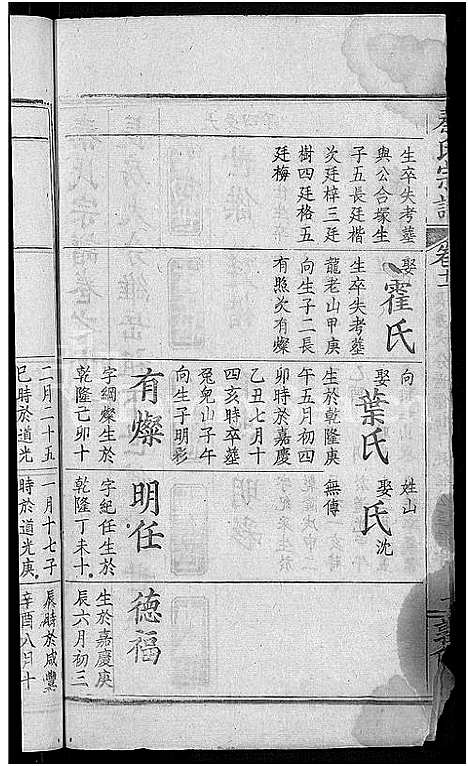 秦氏宗譜
卷十二
生卒失考墓
與公合塚生
子五長廷楷
次廷梓三廷
樹四廷格五
廷梅
娶霍氏
生卒失考墓
龍老山甲庚
向生子二長
有照次有燦
向
娶葉氏
生於乾隆庚
午五月初四
卯時於嘉慶
乙丑七月十
四亥時卒墓
兔兒山子午
向生子明彩
有燦
字綱燦生於
乾隆己卯十
二月二十五
巳時於道光
姓山
娶沈氏
無傳
明任
字紀任生於
乾隆丁未十
一月十七子
時於道光庚
德福
生於嘉慶庚
辰六月初三
辰時於咸豐
辛酉八月十